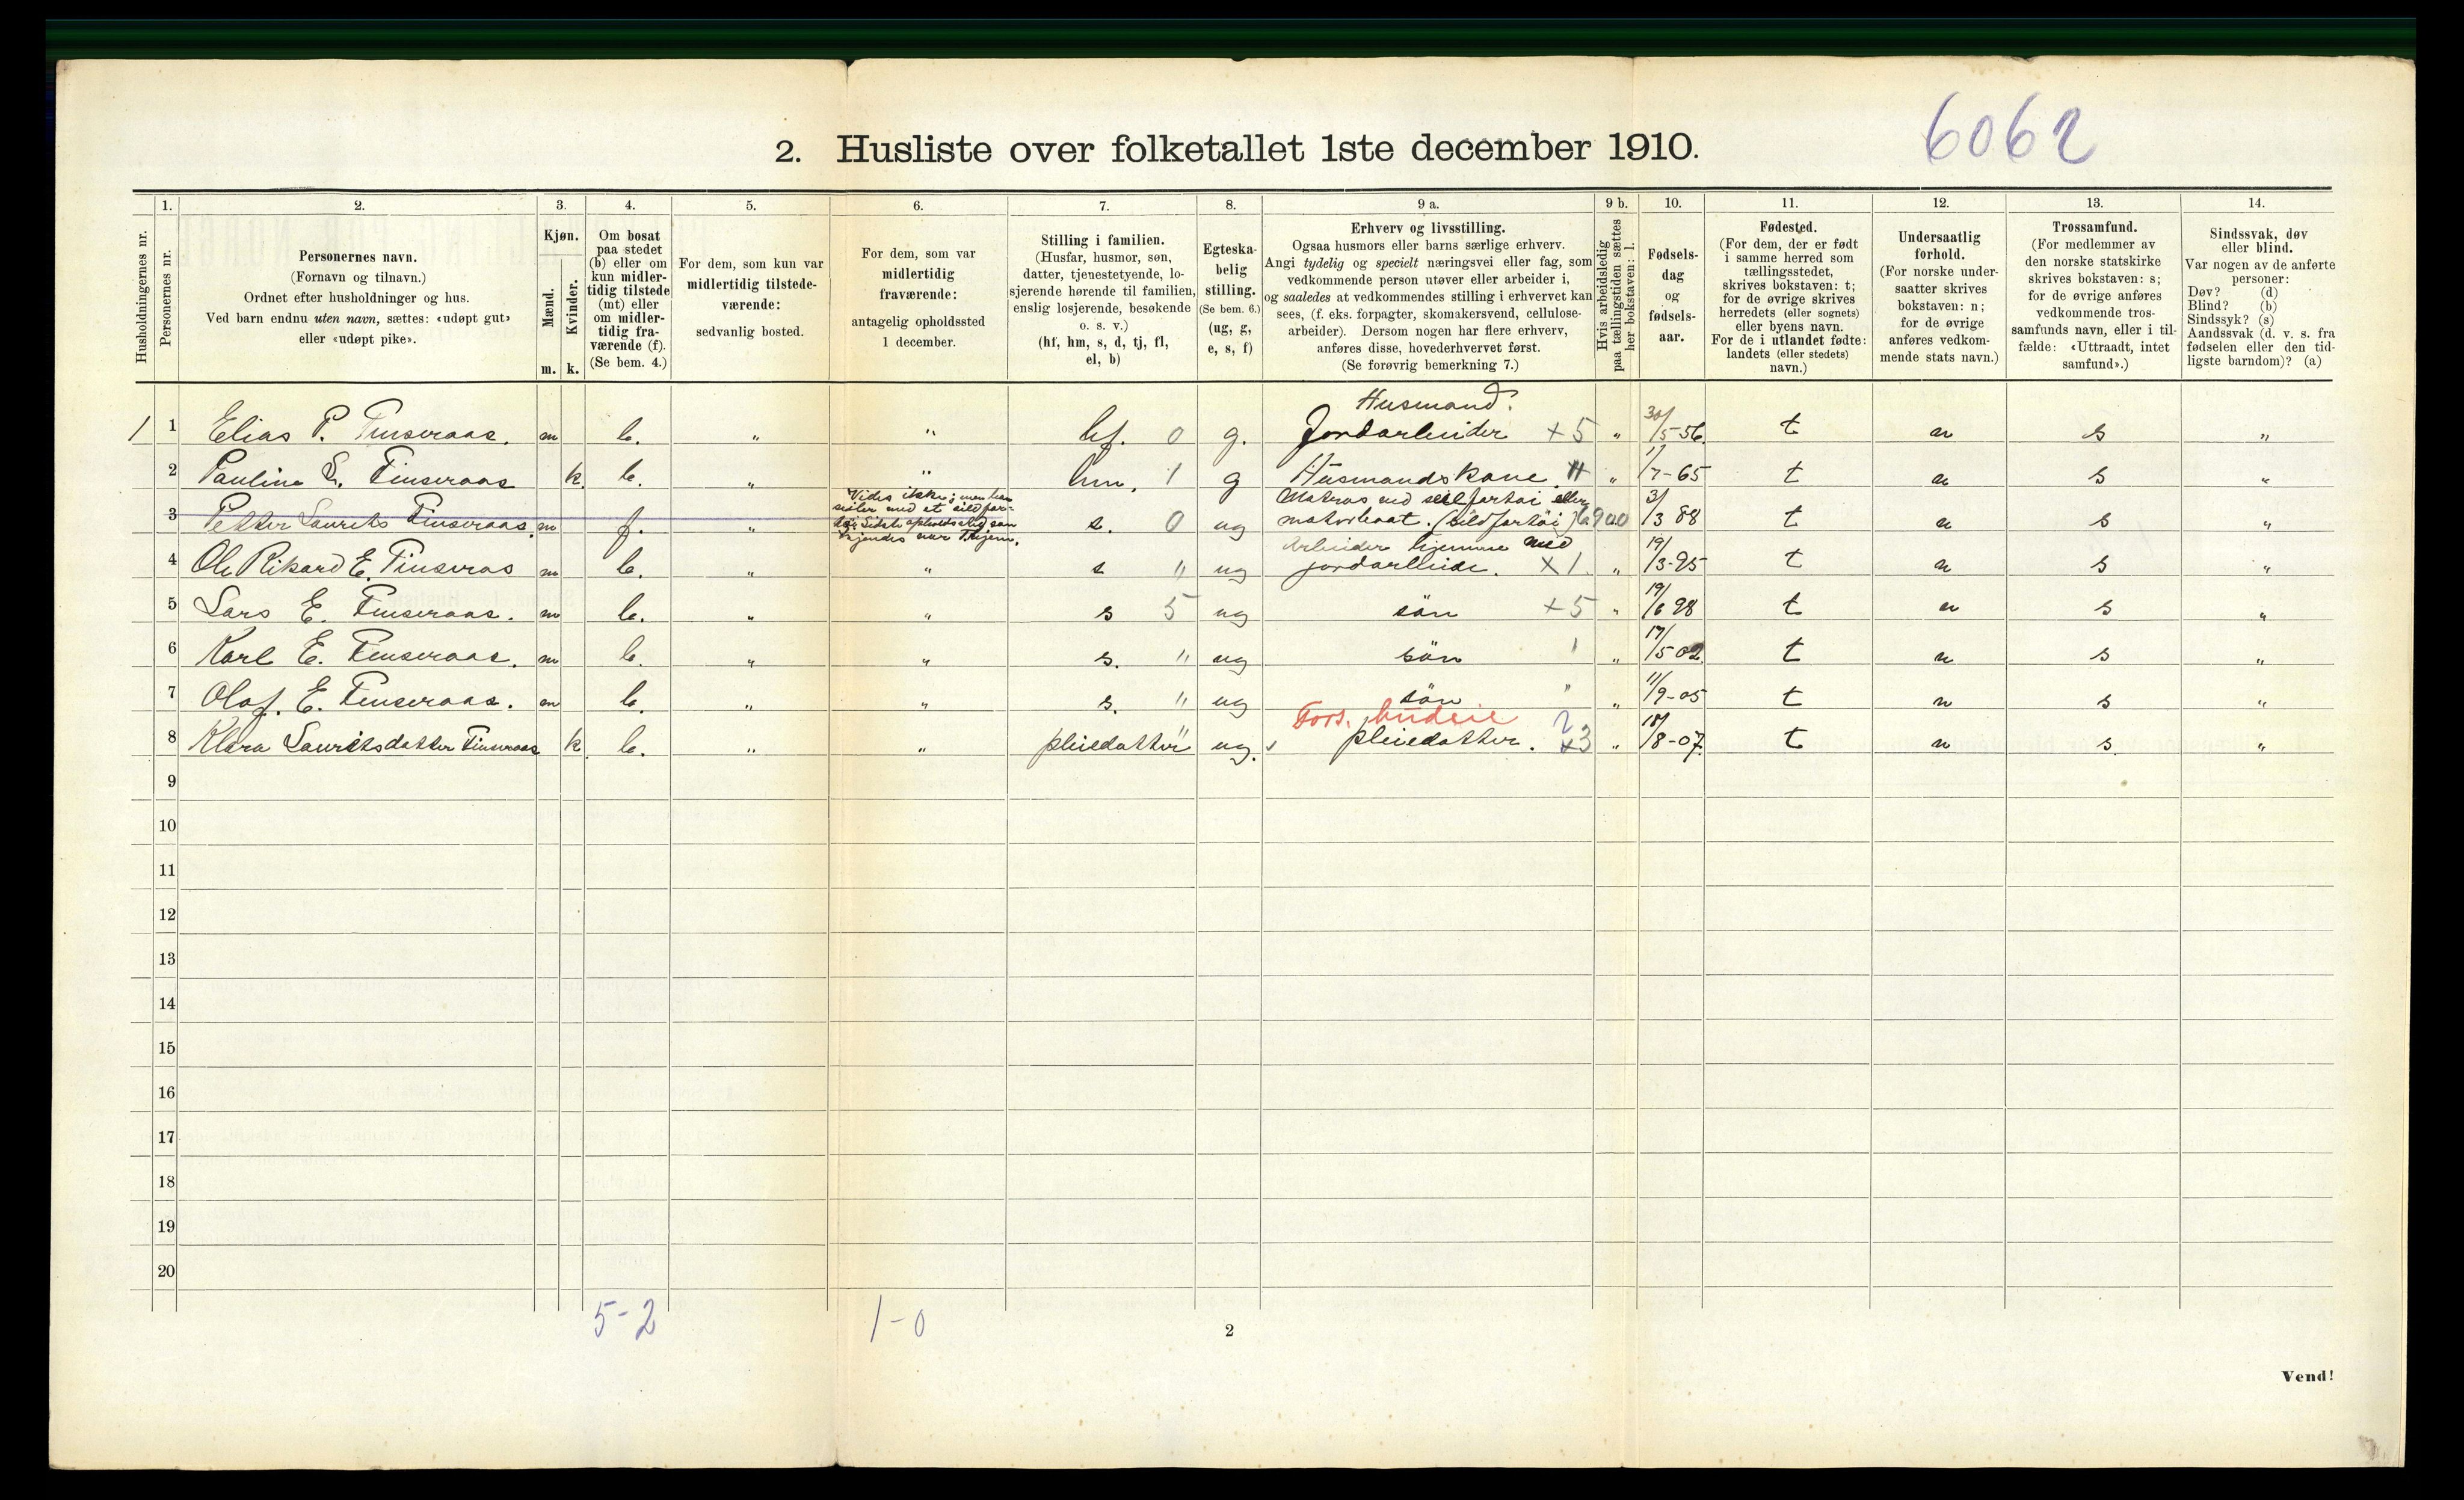 6062
2. Husliste over folketallet 1ste december 1910.
Husholdningernes nr.
1.
Personernes nr.
2.
Personernes navn.
(Fornavn og tilnavn.)
Ordnet efter husholdninger og hus.
Ved barn endnu uten navn, sættes: «udøpt gut»
eller «udøpt pike».
3.
Kjøn.
Mænd.
Kvinder.
m. k.
4.
Om bosat
paa stedet
(b) eller om
kun midler-
tidig tilstede
(mt) eller
om midler-
tidig fra-
værende (f).
(Se bem. 4.)
5.
For dem, som kun var
midlertidig tilstede-
værende:
sedvanlig bosted.
6.
For dem, som var
midlertidig
fraværende:
antagelig opholdssted
1 december.
7.
Stilling i familien.
(Husfar, husmor, søn,
datter, tjenestetyende, lo-
sjerende hørende til familien,
enslig losjerende, besøkende
o. s. v.)
(hf, hm, s, d, tj, fl,
el, b)
8.
Egteska-
belig
stilling.
(Se bem. 6.)
(ug, g,
e, s, f)
9 a.
Erhverv og livsstilling.
Ogsaa husmors eller barns særlige erhverv.
Angi tydelig og specielt næringsvei eller fag, som
vedkommende person utøver eller arbeider i,
og saaledes at vedkommendes stilling i erhvervet kan
sees, (f. eks. forpagter, skomakersvend, cellulose-
arbeider). Dersom nogen har flere erhverv,
anføres disse, hovederhvervet først.
(Se forøvrig bemerkning 7.)
9 b.
Hvis arbeidsledig
paa tællingstiden sættes
her bokstaven: l.
10.
Fødsels-
dag
og
fødsels-
aar.
11.
Fødested.
(For dem, der er født
i samme herred som
tællingsstedet,
skrives bokstaven: t;
for de øvrige skrives
herredets (eller sognets)
eller byens navn.
For de i utlandet fødte:
landets (eller stedets)
navn.)
12.
Undersaatlig
forhold.
(For norske under-
saatter skrives
bokstaven: n;
for de øvrige
anføres vedkom-
mende stats navn.)
13.
Trossamfund.
(For medlemmer av
den norske statskirke
skrives bokstaven: s;
for de øvrige anføres
vedkommende tros-
samfunds navn, eller i til-
fælde: «Uttraadt, intet
samfund».)
14.
Sindssvak, døv
eller blind.
Var nogen av de anførte
personer:
Døv? (d)
Blind? (b)
Sindssyk? (s)
Aandssvak (d. v. s. fra
fødselen eller den tid-
ligste barndom)? (a)
Husmand.
1 1 Elias P. Finseraas. m b. " " hf. 0 g. Jordarbeider +5 " 30/5-56 t n s "
2 Pauline L. Finseraas k. b. " " hm. 1 g Husmandskone. " 1/7-65 t n s "
Vides ikke; men han
3 Petter Laurits Finseraas. m f. s. 0 ug Matros med seilfartøi eller
motorbaat. (sildfartøi) 3/3 88 t n s "
4 Ole Rikard E. Finseras m b. " " s " ug Arbeider hjemme med
jordarbeide. ×1. " 19/3-95 t n s "
5 Lars E. Finseraas. m b. " " s 5 ug sön +5 " 19/6 98 t n s "
6 Karl E. Finseraas. m b. " " s. " ug sön 1 " 17/5-02 t n s "
7 Olaf. E. Finseraas. m b. " " s. " ug sön " " 11/9-05 t n s "
Fors. budeie 2
8 Klara Lauritsdatter Finseraas k b. " " pleiedatter " ug. pleiedatter. +3 " 18/8-07. t n s "
9
10
11
12
13
14
15
16
17
18
19
20
5-2 1-0
2
Vend!